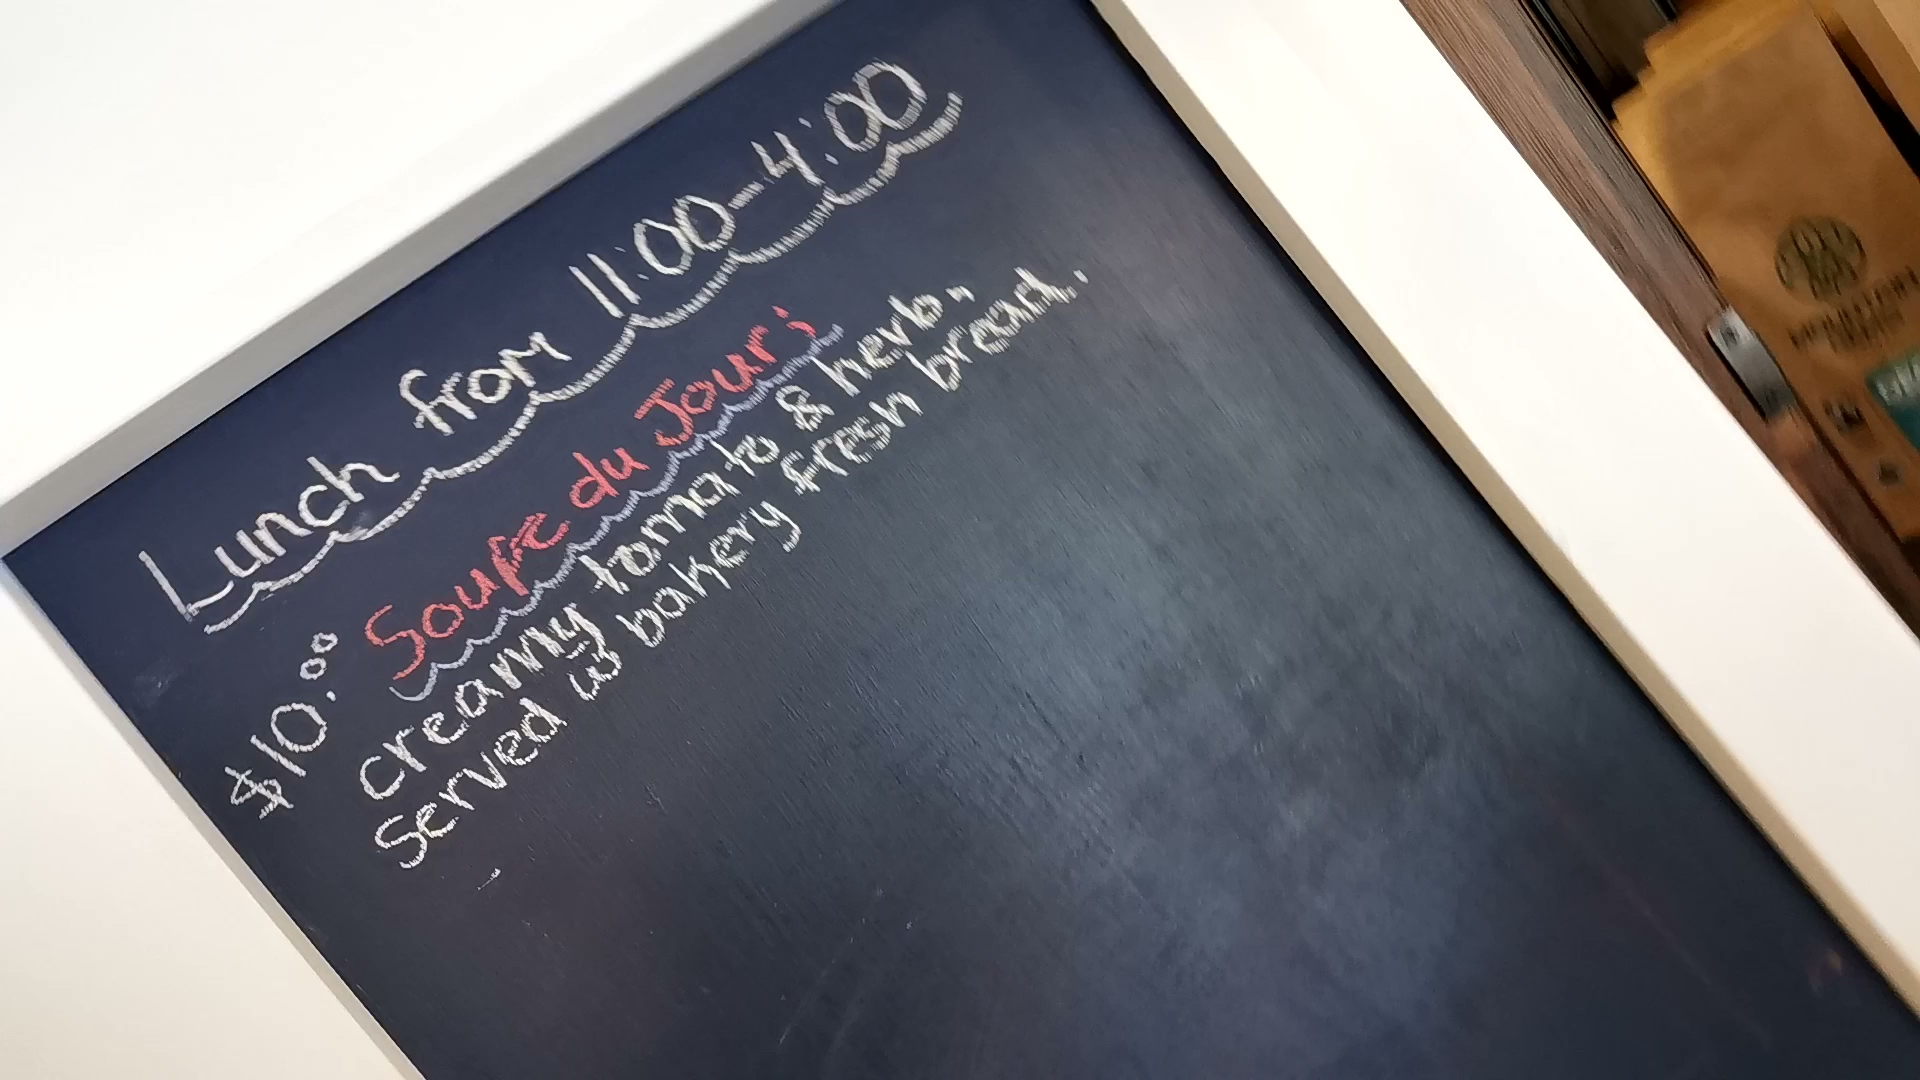 Lunch from 11:00-4:00
$10.00 Soupe du Jour;
creamy tomato & herb,,
served w bakery fresh bread.